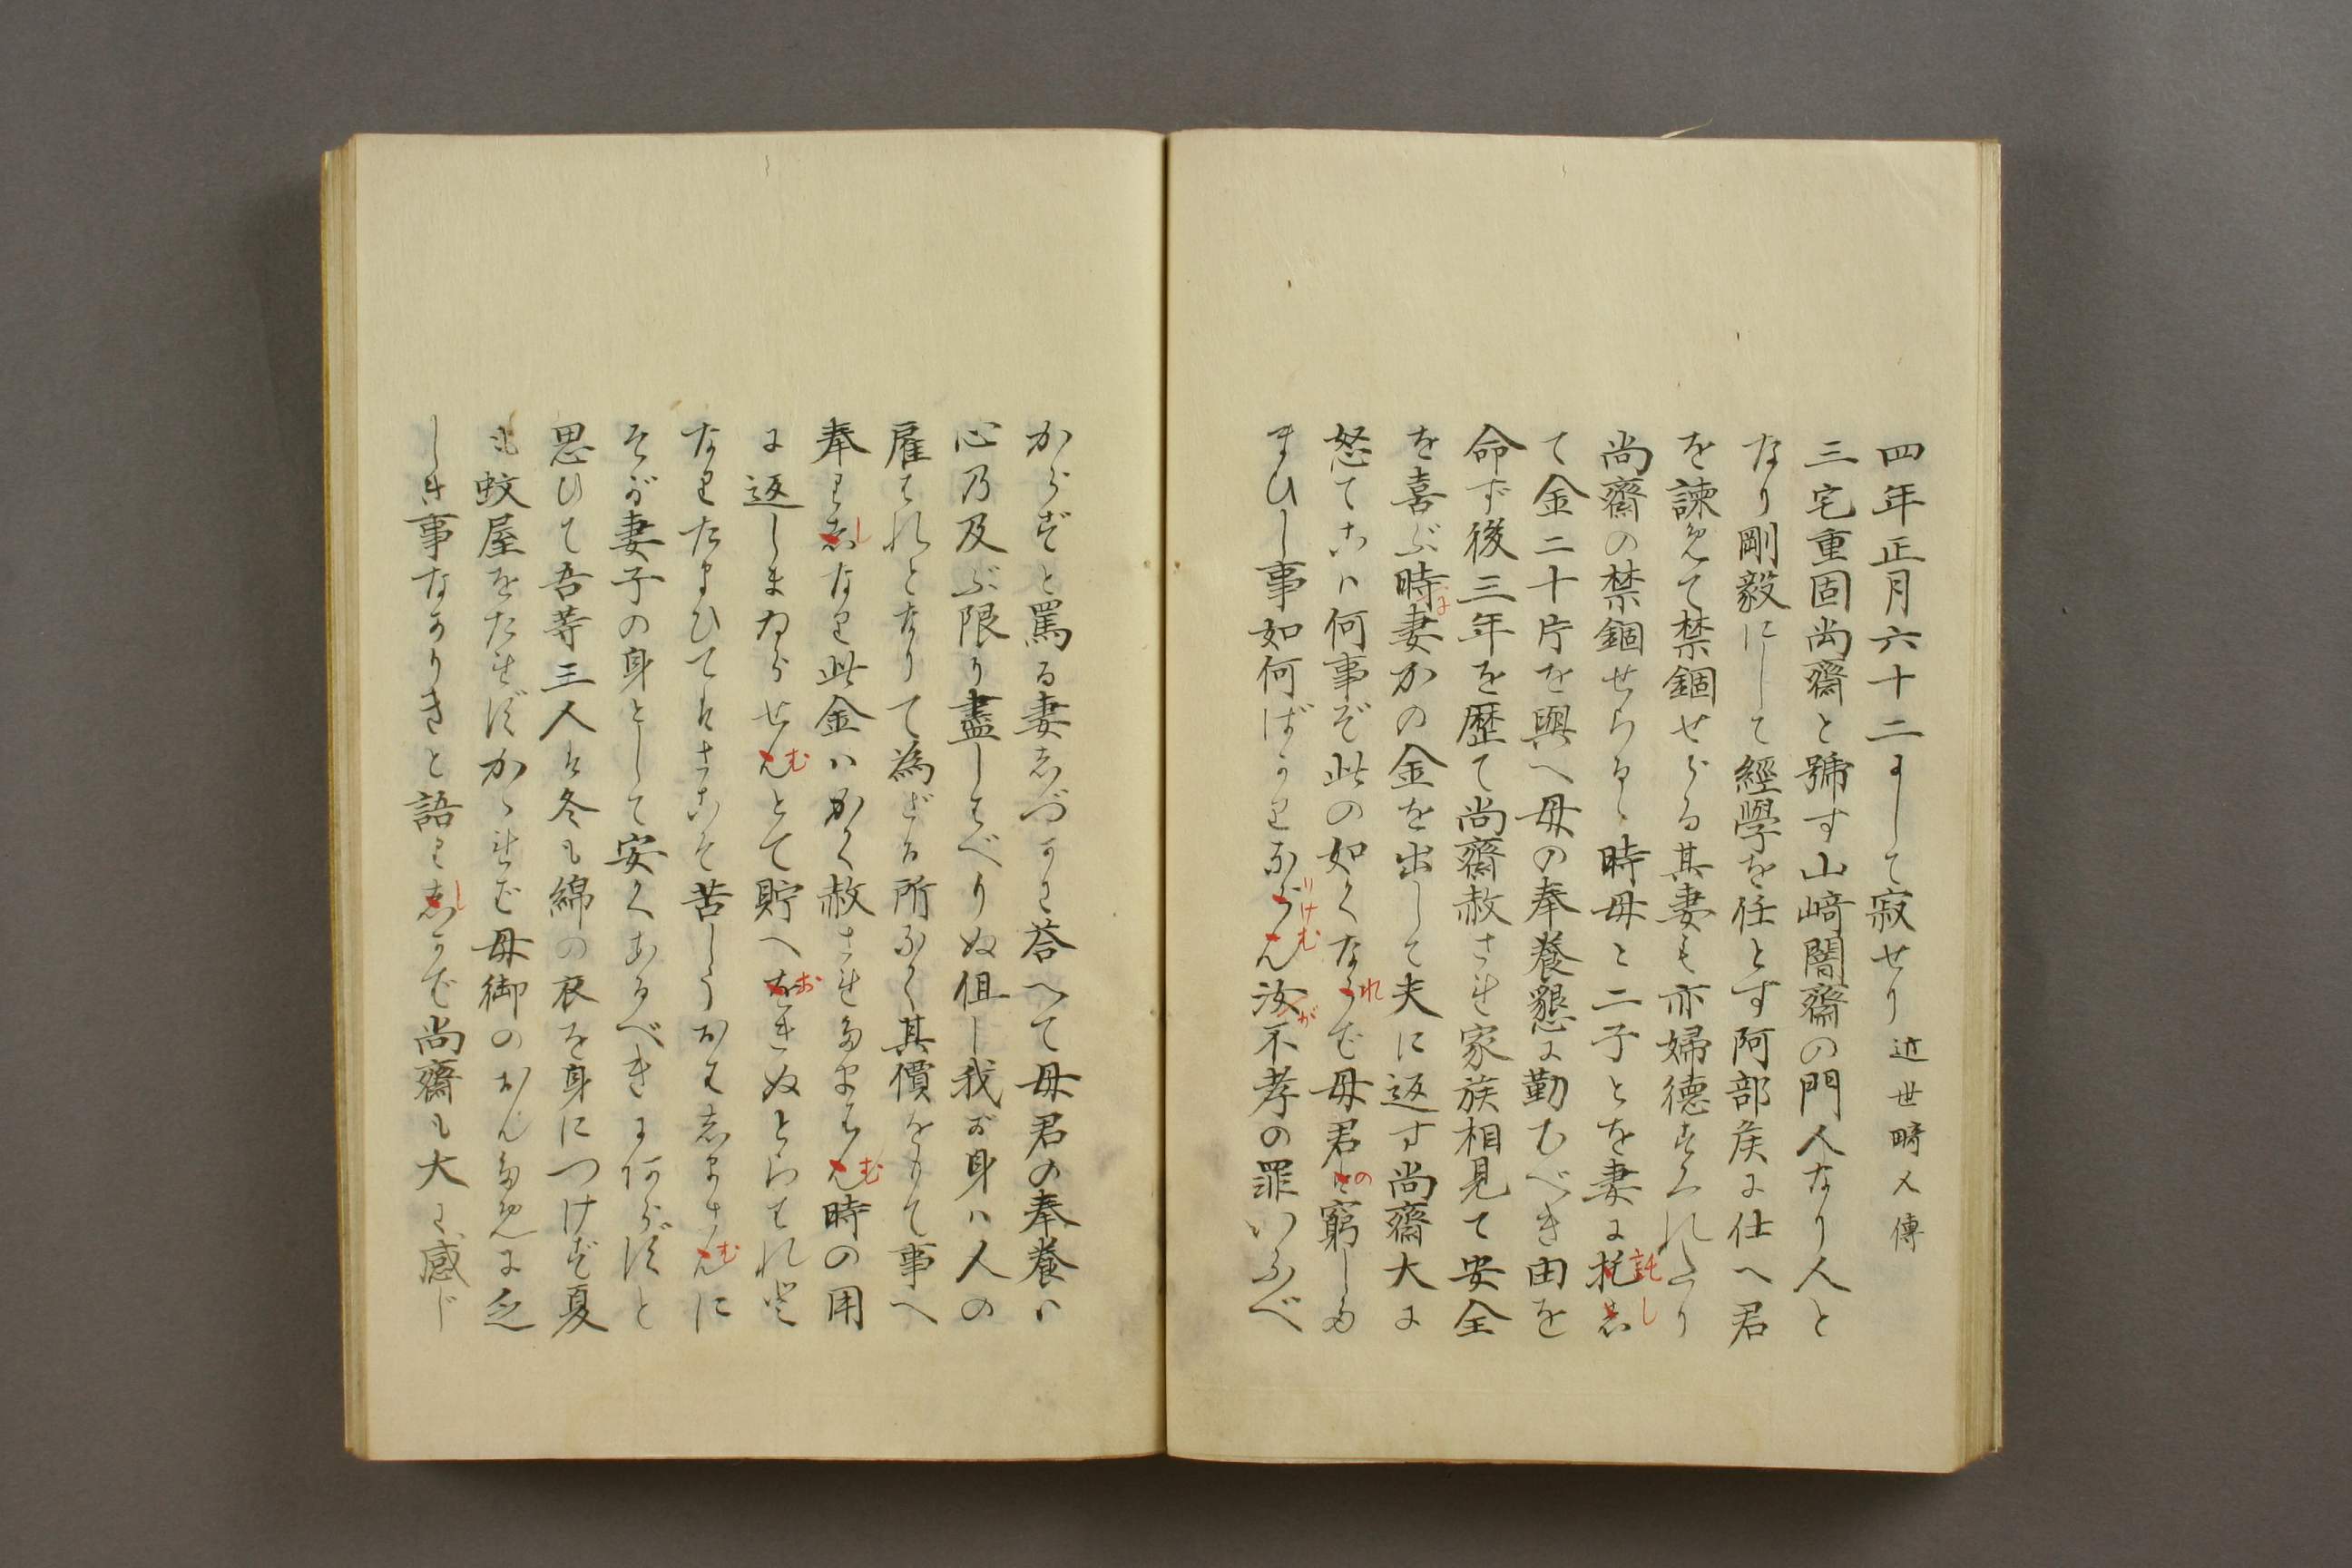 四年正月六十二にして寂せり 近世畸人傳
三宅重固尚齋と號す山﨑闇齋の門人なり人と
なり剛毅にして經學を任とす阿部侯に仕へ君
を諫めて禁錮せらる其妻も亦婦德すぐれたり
尚齋の禁錮せらるゝ時母と二子とを妻に托し託し
て金二十片を與へ母の奉養懇に勤むべき由を
命ず後三年を歷て尚齋赦され家族相見て安全
を喜ぶ時に妻かの金を出して夫に返す尚齋大に
怒てこハ何事ぞ此の如くならバれ母君にの窮した
まひし事如何ばかりならんりけむ汝が不孝の罪いふべ
からずと罵る妻しづかに荅へて母君の奉養ハ
心乃及ぶ限り盡しはべりぬ但し我が身ハ人の
雇はれとなりて為ざる所なく其價をもて事へ
奉りしなり此金ハかく赦されたまはんむ時の用
に返しまゐらせんむとて貯へをおきぬとらはれ人と
なりたまひてはさこそ苦しうおはしまさんむに
そが妻子の身として安くあるべきにあらずと
思ひて吾等三人は冬も綿の衣を身につけず夏
も蚊屋をたれずかゝれど母御のおんために乏
しき事なかりきと語りしかバ尚齋も大に感じ